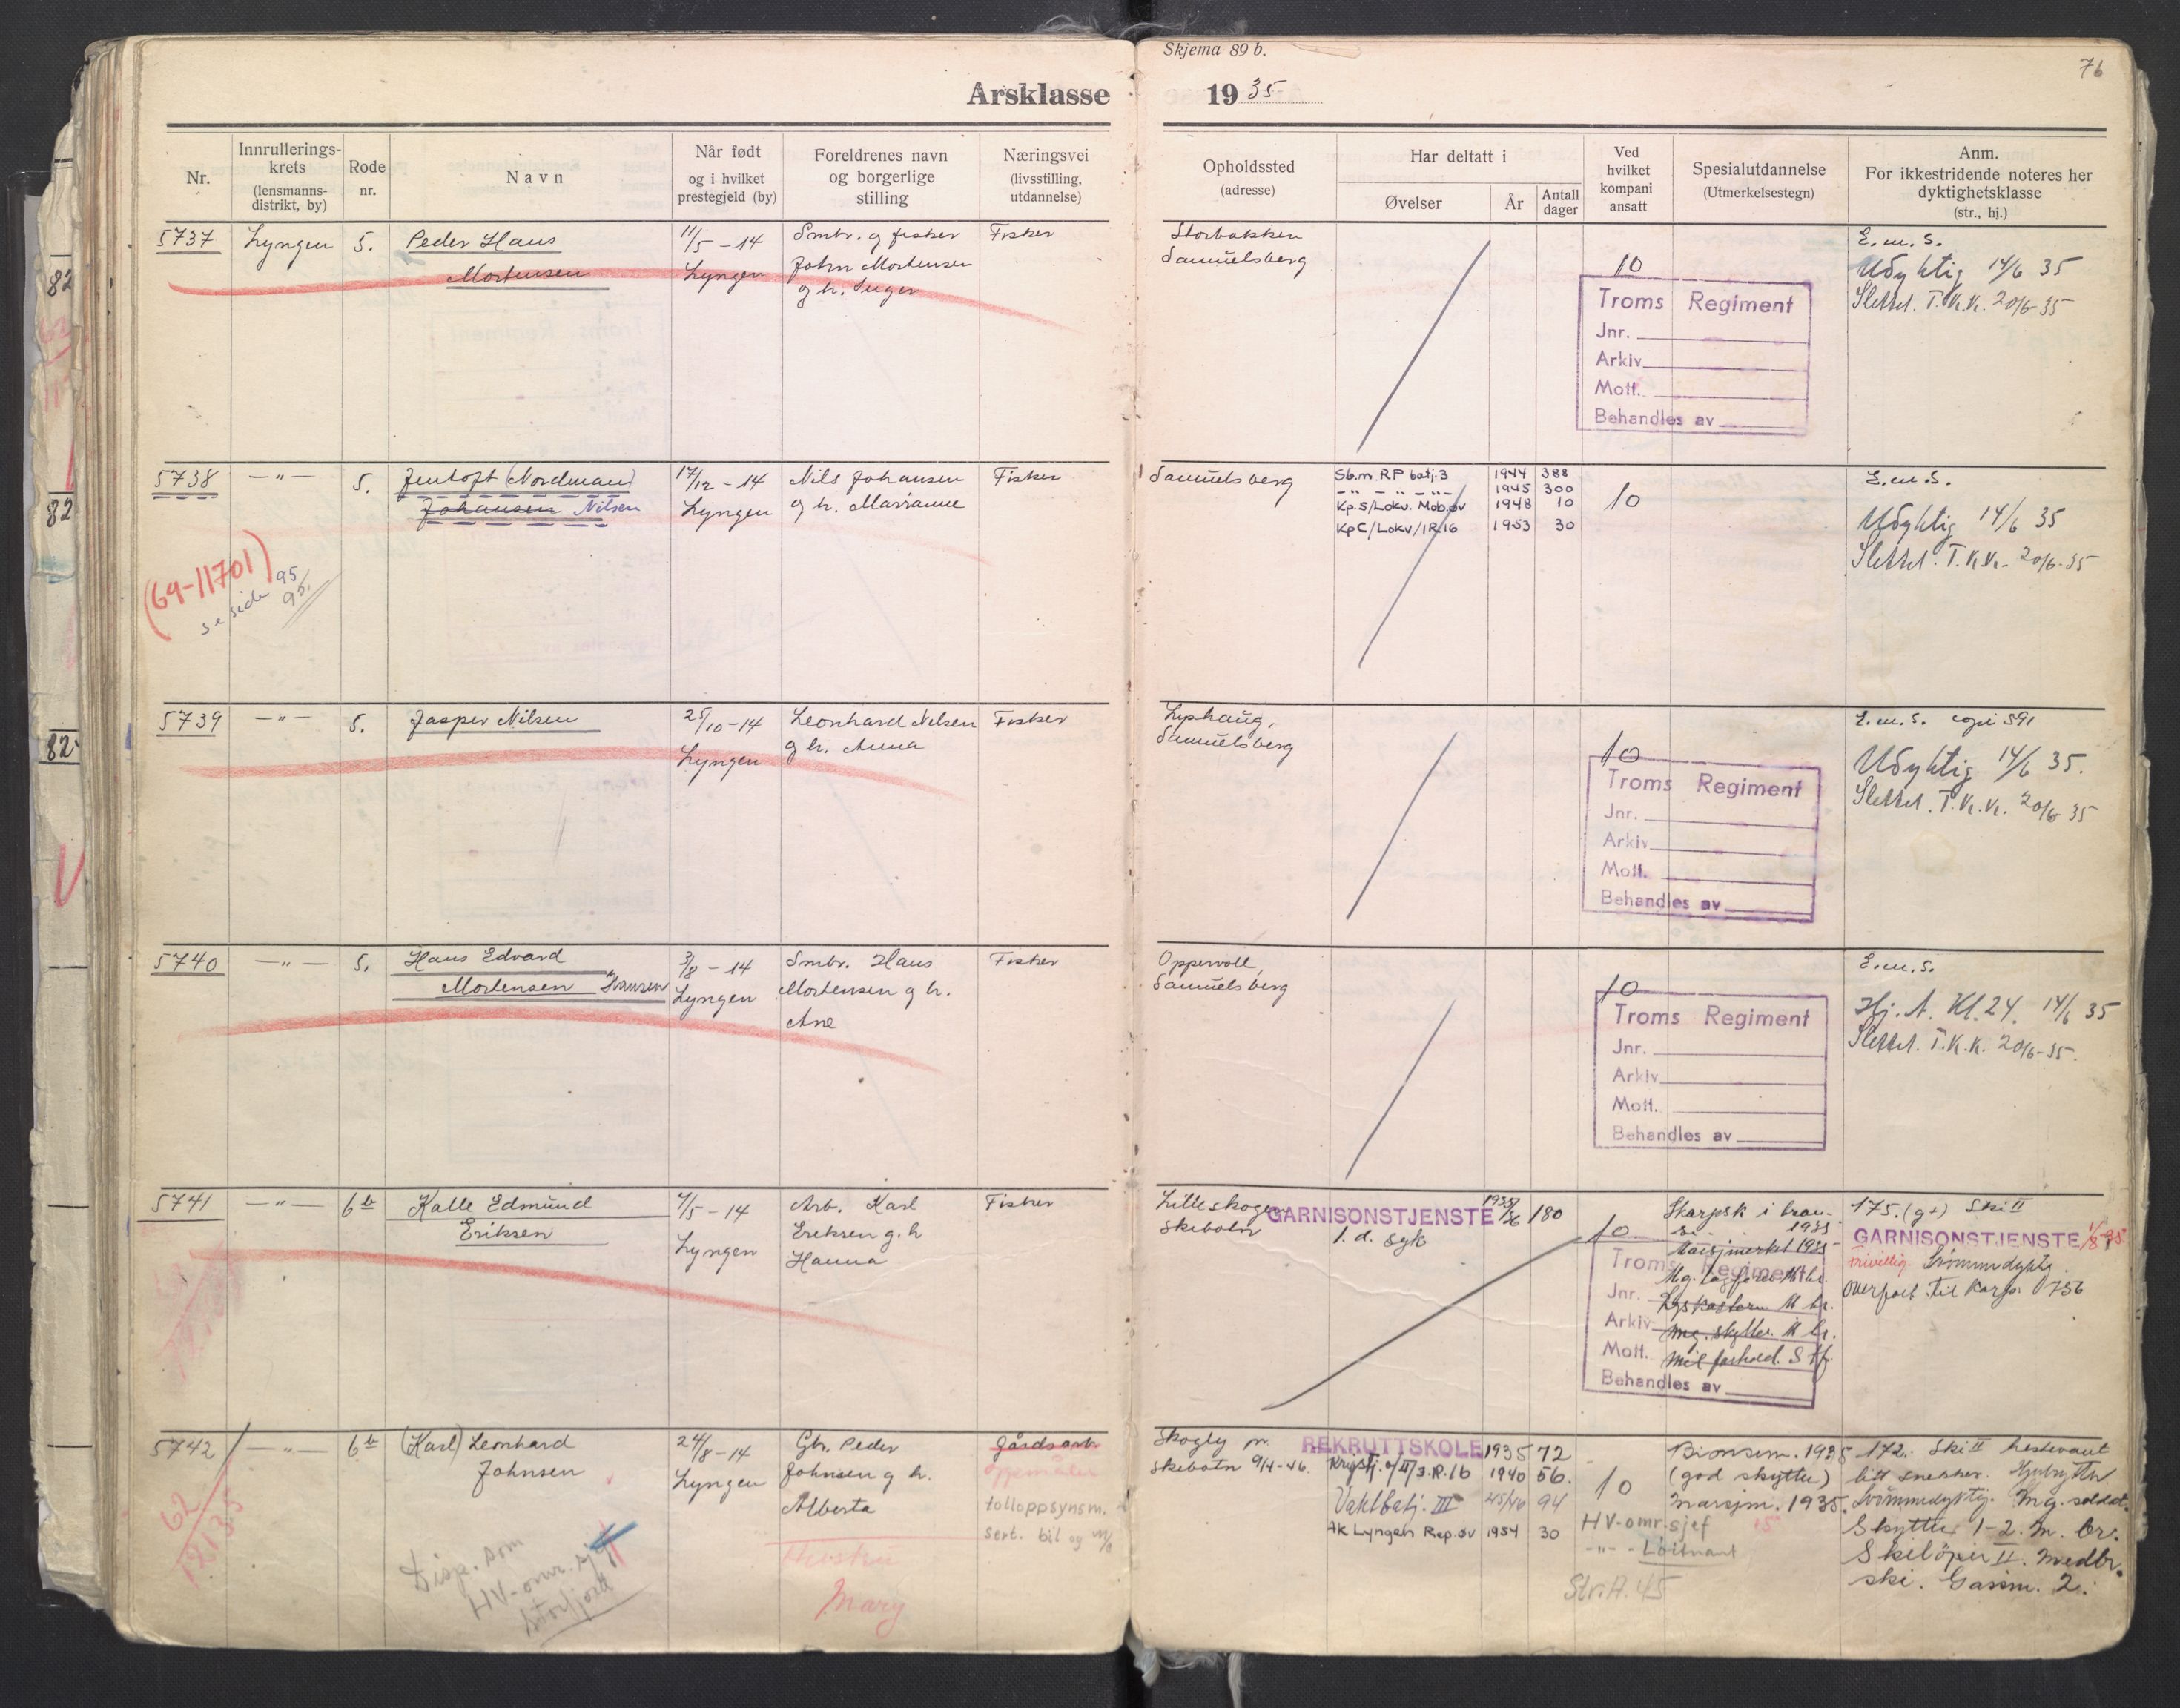 Skjema 89 b.
76
Årsklasse 1935
Nr.
Innrullerings-
krets
(lensmanns-
distrikt, by)
Rode
nr.
Navn
Når født
og i hvilket
prestegjeld (by)
Foreldrenes navn
og borgerlige
stilling
Næringsvei
(livsstilling,
utdannelse)
Opholdssted
(adresse)
Har deltatt i
Øvelser
År
Antall
dager
Ved
hvilket
kompani
ansatt
Spesialutdannelse
(Utmerkelsestegn)
Anm.
For ikkestridende noteres her
dyktighetsklasse
(str., hj.)
5737
Lyngen
5.
Peder Hans
Mortensen
11/5 - 14
Lyngen
Smbr. og fisker
John Mortensen
og h. Inger
Fisker
Storbakken
Samuelsberg
10
Troms Regiment
Jnr.
Arkiv
Mott.
Behandles av
E.m.s.
Udyktig 14/6 35
Slettet. T.kr.kr. 20/6-35
5738
— " —
5.
Jentoft (Nordman)
Johansen Nilsen
17/12 - 14
Lyngen
Nils Johansen
og h. Marianne
Fisker
(69-11701)
se side 95
95.
Samuelsberg
Sb.m. RP batj.3 1944 388
- " - - " - - " - 1945 300
Kp.S/Lokv. Mob.øv 1948 10
KpC/Lokv/IR16 1953 30
10
E.m.s.
Udyktig 14/6 35
Slettet. T.kr.kr. 20/6-35
5739
— " —
5.
Jasper Nilsen
25/10-14
Lyngen
Leonhard Nilsen
og h. Anna
Fisker
Lyshaug,
Samuelsberg
10
Troms Regiment
Jnr.
Arkiv
Mott.
Behandles av
E.m.s. copi 591
Udyktig 14/6 35.
Slettet. T.kr.kr. 20/6 35
5740
— " —
5.
Hans Edvard
Mortensen "Hansen
3/8 - 14
Lyngen
Smbr. Hans
Mortensen og h.
Ane
Fisker
Oppervoll,
Samuelsberg
10
Troms Regiment
Jnr.
Arkiv
Mott.
Behandles av
E.m.s.
Hj. A. Kl. 24. 14/6 35
Slettet. T.K.K. 20/6-35.
5741
— " —
6 b
Kalle Edmund
Eriksen
4/5 - 14
Lyngen
Arb. Karl
Eriksen og h
Hanna
Fisker
Lilleskogen
Skibotn
GARNISONSTJENSTE 1935/36 180
1. d. syk
10
Troms Regiment
Jnr.
Arkiv
Mott.
Behandles av
Skarpsk i bron-
se. 1935
Marsjmerket 1935
Mg. lagfører M br.
Lyskastern M br.
Mg. skytter. M br.
Mil forhold. S tf.
175. (g+) Ski II
GARNISONSTJENSTE 1/8-35
Frivillig. Svømmedyktig
overført til Korps. 0756
5742
— " —
6 b
(Karl) Leonhard
Johnsen
24/8 - 14
Lyngen
Gbr. Peder
Johnsen og h.
Alberta
gårdsarb
tolloppsynsm.
sert. bil og m/s
62
12135
Disp. som
HV-omr. sjef
Storfjord
Hustru
Mary
Skogly pr.
Skibotn 9/4-46.
REKRUTTSKOLE 1935 72
Krystj. v/II/J.R.16 1940 56.
Vaktbatj. III 45/46 94
AK Lyngen Rep.øv 1954 30
10
HV-omr.sjef
- " - Løitnant
Str. A. 45
Bronsem. 1935
(god skytter)
marsjm. 1935.
172. Ski II hestevant
litt snekker.
Svømmedyktig. Mg. soldat.
Skytter 1-2. M. br.
Skiløper II. Medbr.
ski. Gassm. 2.